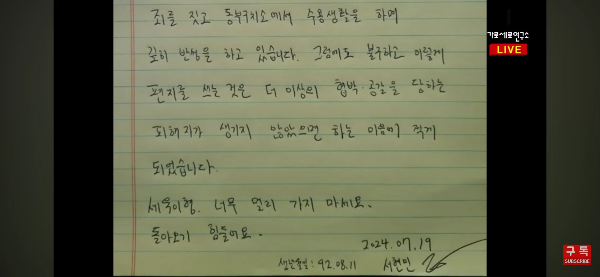 죄를 짓고 동부구치소에서 수용생활을 하며
깊히 반성을 하고 있습니다. 그럼에도 불구하고 이렇게
편지를 쓰는 것은 더 이상의 협박·공갈을 당하는
피해자가 생기지 않았으면 하는 마음에 적게
되었습니다.
세욱이형. 너무 멀리 가지 마세요.
돌아오기 힘들어요.
2024.07.19
생년월일: 92.08.11
가로세로연구소
LIVE
구독
SUBSCRIBE